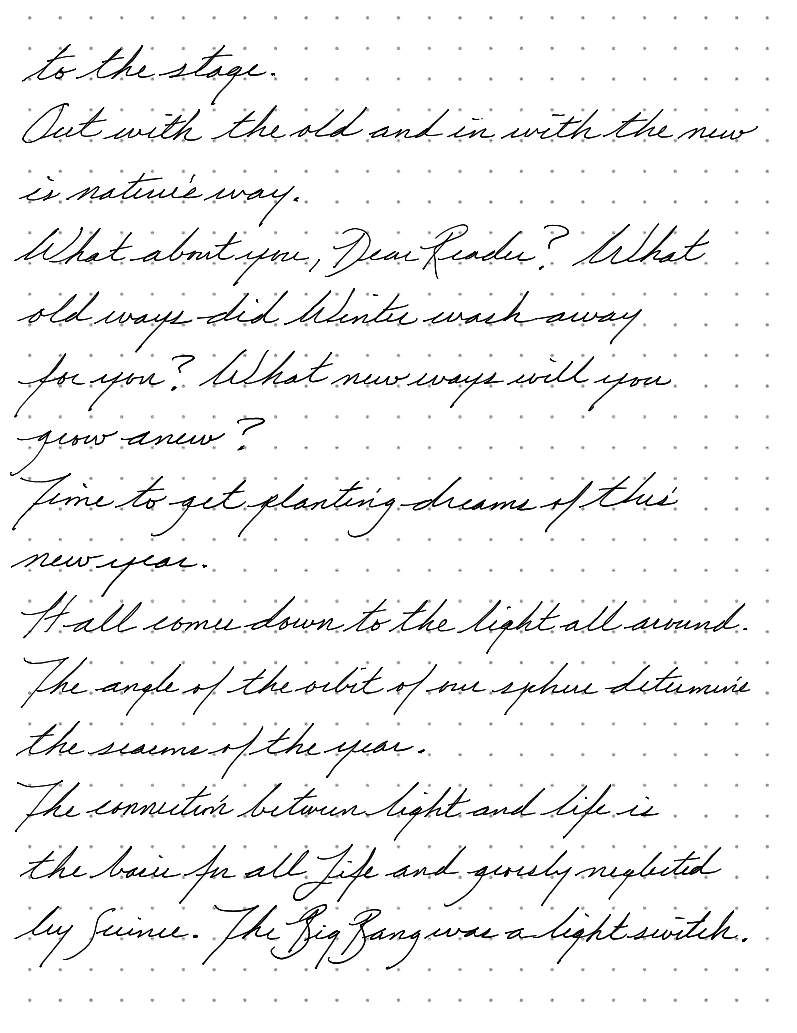 to the stage.
Out with the old and in with the new
is nature's way.
What about you, Dear Reader? What
old ways did Winter wash away
for you? What new ways will you
grow anew?
Time to get planting dreams of this
new year.
It all comes down to the light all around.
The angle of the orbit of our sphere determine
the seasons of the year.
The connection between light and life is
the basis for all Life and grossly neglected
by Science. The Big Bang was a light switch.